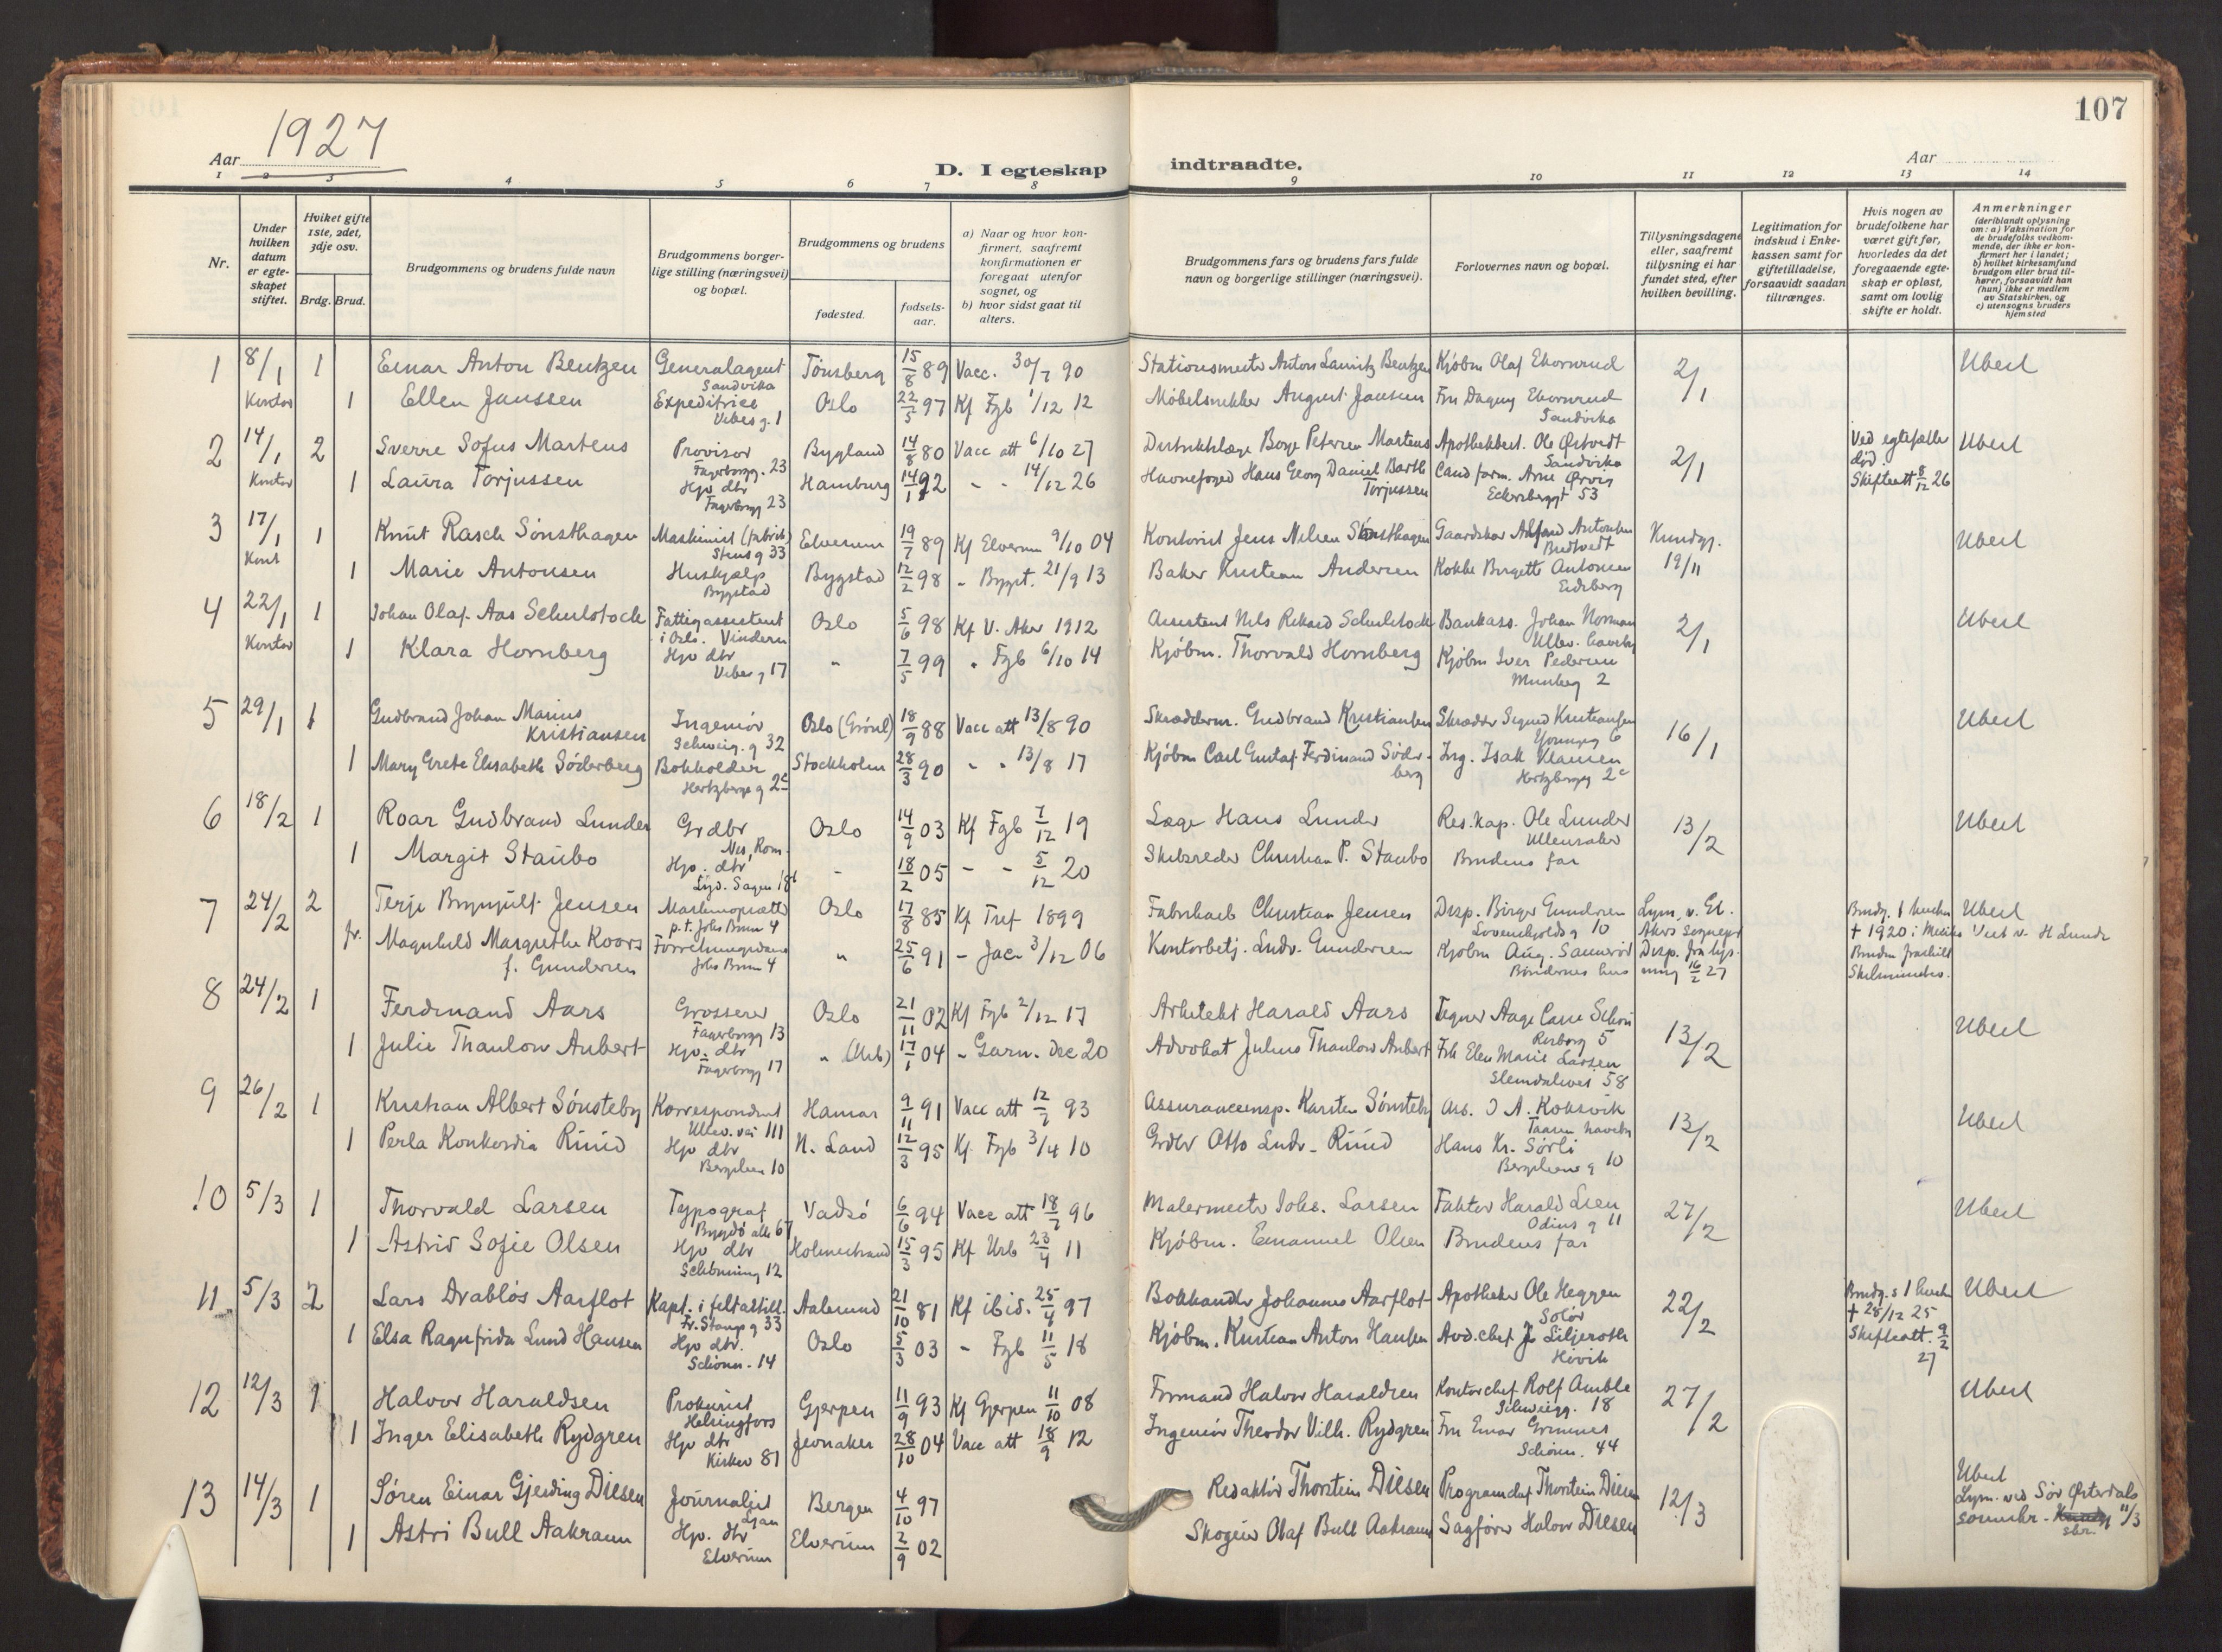 107
Aar 1927
D. I egteskap indtraadte.
Aar
1 2 3 4 5 6 7 8 9 10 11 12 13 14
Nr.
Under hvilken datum er egteskapet stiftet.
Hviket gifte 1ste, 2det, 3dje osv.
Brdg. Brud.
Brudgommens og brudens fulde navn
Brudgommens borgerlige stilling (næringsvei) og bopæl.
Brudgommens og brudens
fødested.
fødselsaar.
a) Naar og hvor konfirmert, saafremt konfirmationen er foregaat utenfor sognet, og
b) hvor sidst gaat til alters.
Brudgommens fars og brudens fars fulde navn og borgerlige stillinger (næringsvei).
Forlovernes navn og bopæl.
Tillysningsdagene eller, saafremt tillysning ei har fundet sted, efter hvilken bevilling.
Legitimation for indskud i Enkekassen samt for giftetilladelse, forsaavidt saadan tiltrænges.
Hvis nogen av brudefolkene har været gift før, hvorledes da det foregaaende egteskap er opløst, samt om lovlig skifte er holdt.
Anmerkninger
(deriblandt oplysning om: a) Vaksination for de brudefolks vedkommende, der ikke er konfirmert her i landet; b) hvilket kirkesamfund brudgom eller brud tilhører, forsaavidt han (hun) ikke er medlem av Statskirken, og c) utensogns bruders hjemsted
1 8/1 1 Einar Anton Bentzen Generalagent Sandvika Tønsberg 15/8 89 Vacc. 30/7 90 Stationsmester Anton Lauritz Bentzen Kjøbm Olaf Ekornrud 2/1 Ubert
Kontor 1 Ellen Janssen Expeditrice Vibesg. 1 Oslo 22/5 97 Kf Fgb 1/12 12 Møbelsnekker August Jansen Fru Dagny Ekornrud Sandvika
2 14/1 2 Sverre Sofus Martens Provisor Fagerborgg. 23 Bygland 14/8 80 Vacc att 6/10 27 Distriktslæge Børge Petersen Martens Apothekbest. Ole Østvedt Sandvika 2/1 Ved egtefælles død. Skifteatt 8/12 26 Ubert
Kontor 1 Laura Torjussen Hjv dtr Fagerborgg 23 Hamburg 14/1 92 - - 14/12 26 Havnefoged Hans Georg Daniel Barth Torjussen Cand farm. Arne Eckersbergst 53
3 17/1 1 Knut Rasch Sønsthagen Maskinist (fabrik) Stensg 33 Elverum 19/7 89 Kf Elverum 9/10 04 Kontorist Jens Nilsen Sønsthagen Gaardskar Antonsen Bredtvedt Kundgj. 19/11 Ubert
Kont 1 Marie Antonsen Hushjælp Bygstad Bygstad 12/2 98 - Bygst. 21/9 13 Baker Kristian Andersen Kokke Birgitte Antonsen Eidsberg
4 22/1 1 Johan Olaf Aas Schulstock Fattigassistent i Oslo. Vindern Oslo 5/6 98 Kf V. Aker 1912 Assistent Nils Rikard Schulstock Bankass. Johan Norman Ullev. haveby 2/1 Ubert
Kontor 1 Klara Hornberg Hjv dtr Vibesg 17 " 7/5 99 " Fgb 6/10 14 Kjøbm. Thorvald Hornberg Kjøbm Iver Pedersen Munkeg 2
5 29/1 1 Gudbrand Johan Marius Kristiansen Ingeniør Schweig. g 32 Oslo (Grønl) 18/9 88 Vacc att 13/8 90 Skræddem. Gudbrand Kristiansen Skrædder Sigurd Kristiansen Youngsg 6 16/1 Ubert
1 Mary Grete Elisabeth Søderberg Bokholder Hertzbergs g 2c Stockholm 28/3 90 - - 13/8 17 Kjøbm Carl Gustaf Ferdinand Søderberg Ing. Isak Klausen Hertzbergsg 2c
6 18/2 1 Roar Gudbrand Lunder Grdbr Nes, Rom. Oslo 14/9 03 Kf Fgb 7/12 19 Læge Hans Lunder Res.kap. Ole Lunder Ullensaker 13/2 Ubert
1 Margit Staubo Hjv. dtr Lyd. Sagen 18b - 18/2 05 - - 5/12 20 Skibsreder Christian P. Staubo Brudens far
7 24/2 2 Terje Brynjulf Jensen Maskinopsætter p.t. Johs Brun 4 Oslo 17/8 85 Kf Tref 1899 Fabrikarb Christian Jensen Disp. Birger Gundersen Løvenskjoldsg 10 Lysn. v. Gl. Akers sogneprest Brudg. 1 hustru + 1920 i Mexiko Ubert Viet v. H Lunde
fr. Magnhild Margrethe Koors f. Gundersen Forretningsdame Johs Brun 4 " 25/6 91 - Jac. 3/12 06 Kontorbetj. Ludv. Gundersen Kjøbm Aug. Sannerød Brudens hus Disp. fra lysning 16/2 27 Bruden fraskilt
8 24/2 1 Ferdinand Aars Grosserer Fagerborgg 13 Oslo 21/11 02 Kf Fgb 2/12 17 Arkitekt Harald Aars Tegner Aage Schou 5 13/2 Ubert
1 Julie Thaulow Aubert Hjv. dtr Fagerborgg 17 " (Urb) 17/1 04 - Garn. dec 20 Advokat Julius Thaulow Aubert Frk Elen Marie Larsen Slemdalsvei 58
9 26/2 1 Kristian Albert Sønsteby Korrespondent Ullev. vei 111 Hamar 9/11 91 Vacc att 12/7 93 Assuranceinsp. Karsten Sønsteby Ass. O A. Koksvik Taasen haveby 13/2 Ubert
1 Perla Konkordia Ruud Hjv dtr Bergslien 10 N. Land 12/3 95 Kf. Fgb 3/4 10 Grdbr Otto Ludv. Ruud Hans Kr. Sørli Bergsliens g 10
10 5/3 1 Thorvald Larsen Typograf Bygdø alle 67 Vadsø 6/6 94 Vacc att 18/7 96 Malermester Johs. Larsen Faktor Harald Lien Odins g 11 27/2 Ubert
1 Astrid Sofie Olsen Hjv dtr Schønning 12 Holmestrand 15/3 95 Kf Urb 23/4 11 Kjøbm. Emanuel Olsen Brudens far
11 5/3 2 Lars Drabløs Aarflot Kapt. i feltartill. Fr. Stangs g 33 Aalesund 21/10 81 Kf ibid. 25/4 97 Bokhandler Johannes Aarflot Apotheker Ole Heggen Solør 22/2 Brudg.s 1 hustru + 28/12 25 Skifteatt. 9/2 27 Ubert
1 Elsa Ragnfrida Lund Hansen Hjv dtr. Schønn. 14 Oslo 5/3 03 - Fgb 11/5 18 Kjøbm. Kristian Anton Hansen Avd.chef J. Liljeroth Høvik
12 12/3 1 Halvor Haraldsen Prokurist Helsingfors Gjerpen 11/9 93 Kf Gjerpen 11/10 08 Formand Halvor Haraldsen Kontorchef Rolf Amble Schweigg. 18 27/2 Ubert
1 Inger Elisabeth Rydgren Hjv dtr Kirkev 81 Jevnaker 28/10 04 Vacc att 18/9 12 Ingeniør Theodor Vilh. Rydgren Fru Einar Grinnes Schønn. 44
13 14/3 1 Søren Einar Gjerding Diesen Journalist Ljan Bergen 4/10 97 Redaktør Thorstein Diesen Programchef Thorstein Diesen 12/3 Ubert Lysn. ved Sør Østerdals sorenskr. 11/3
1 Astri Bull Aakrann Hjv. dtr Elverum Elverum 2/9 02 Skogeier Olaf Bull Aakrann Sagfører Halvor Diesen